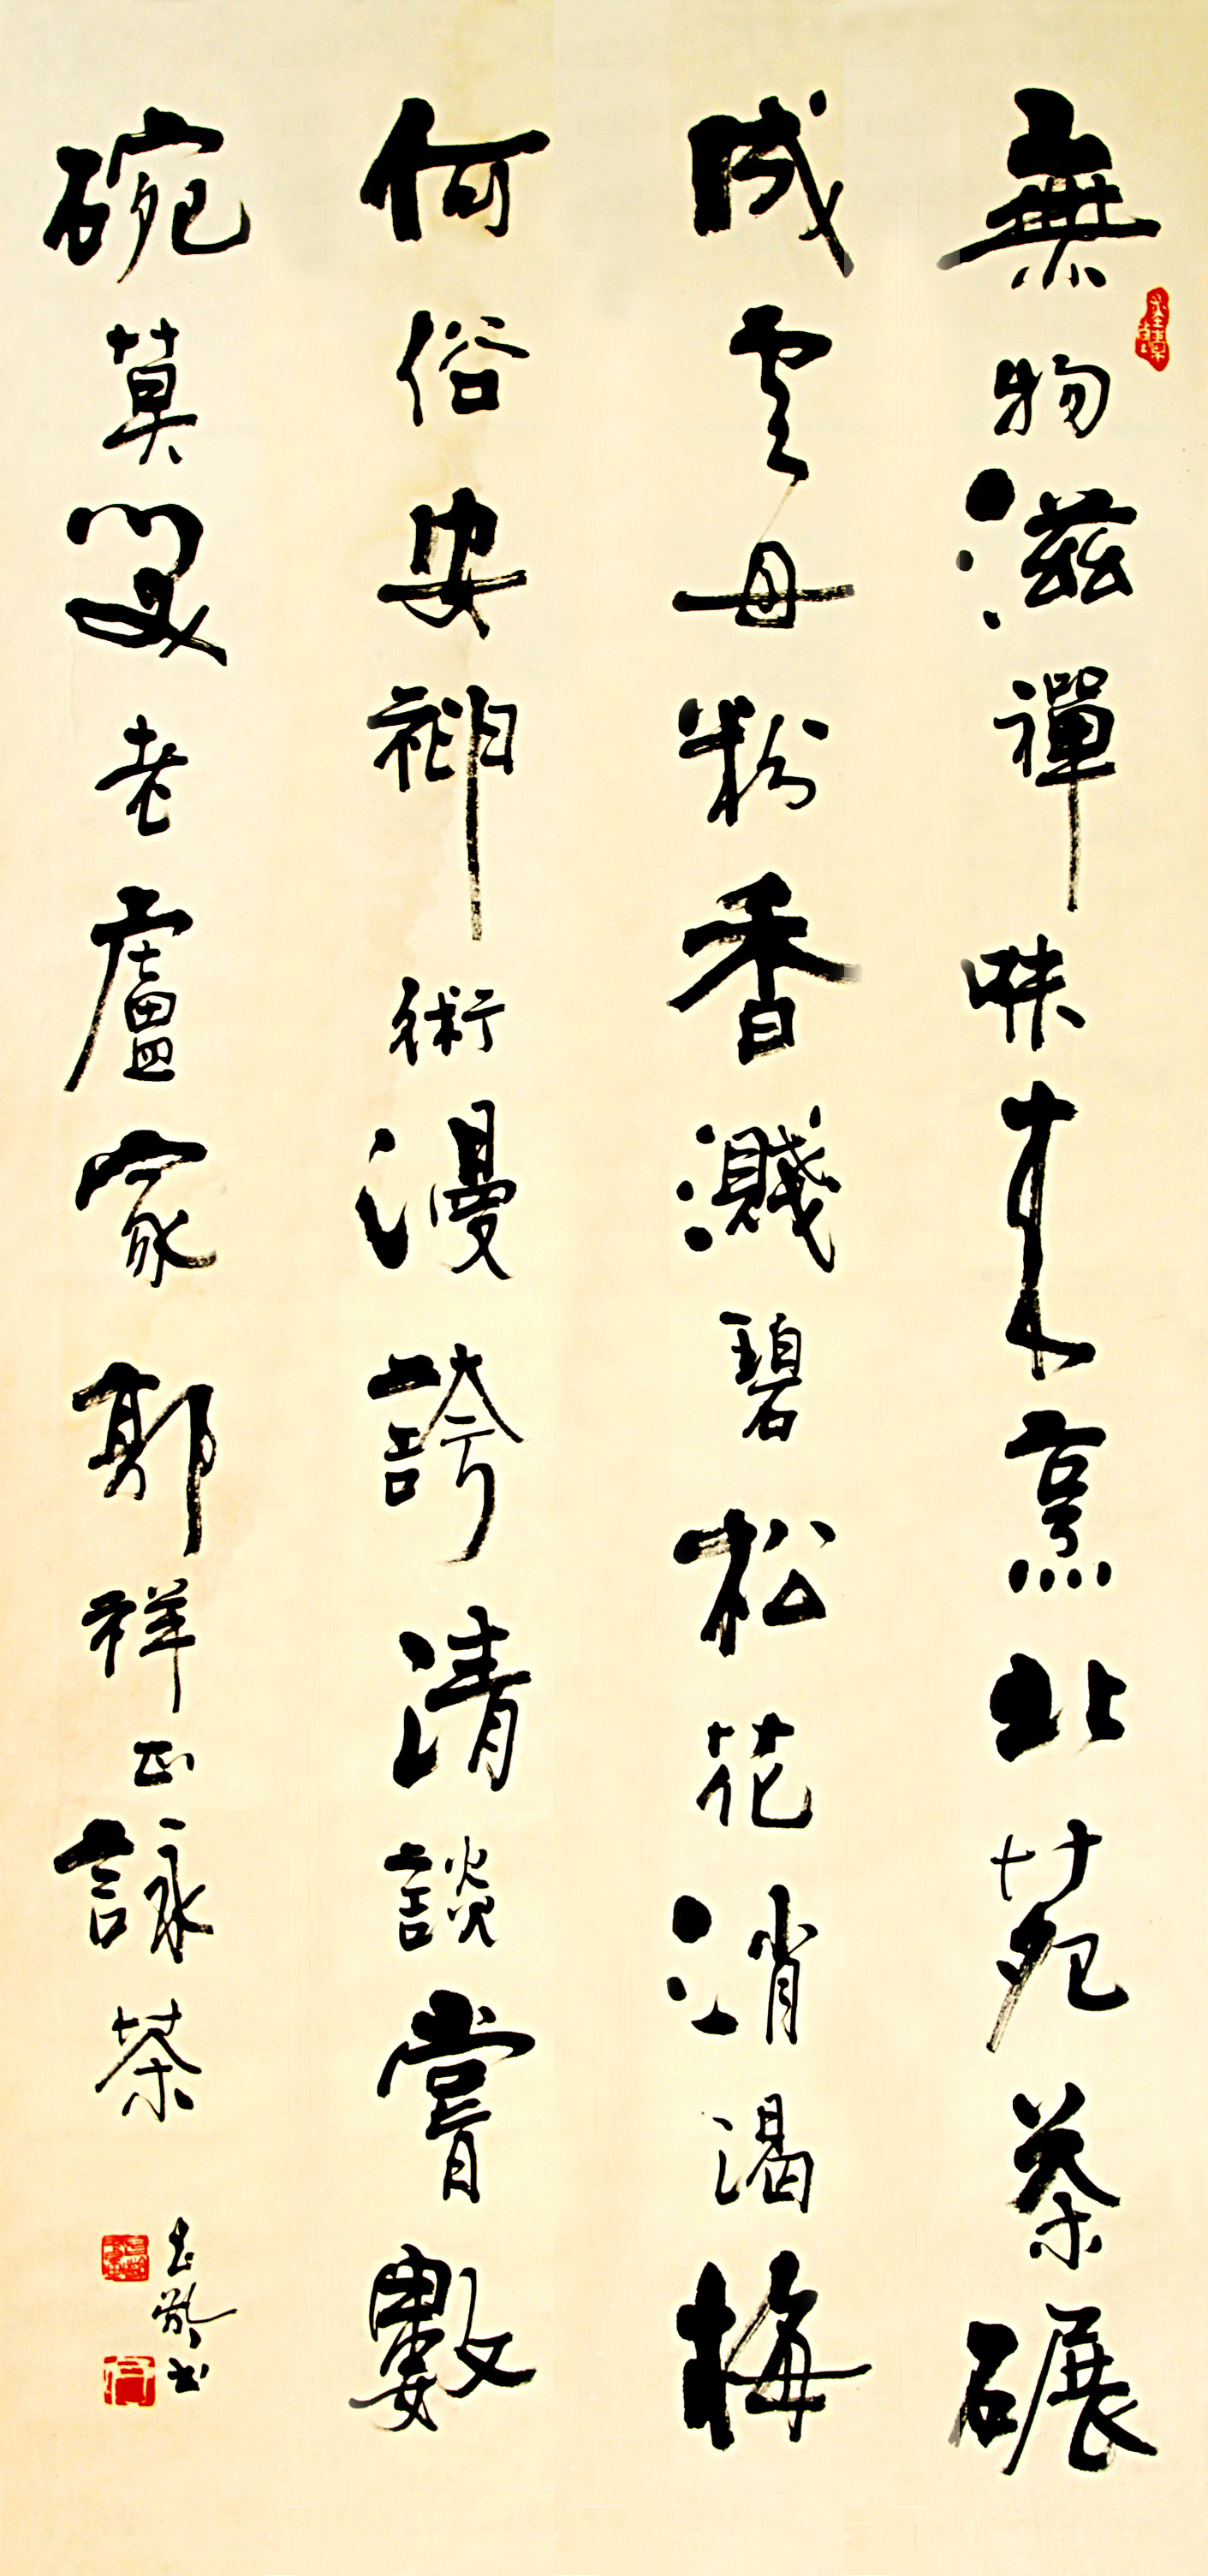 無物滋禪味来烹北苑茶碾
成雲母粉香濺碧松花消渴梅
何俗安神術漫誇清談嘗數
碗莫笑老盧家郭祥正詠茶
書